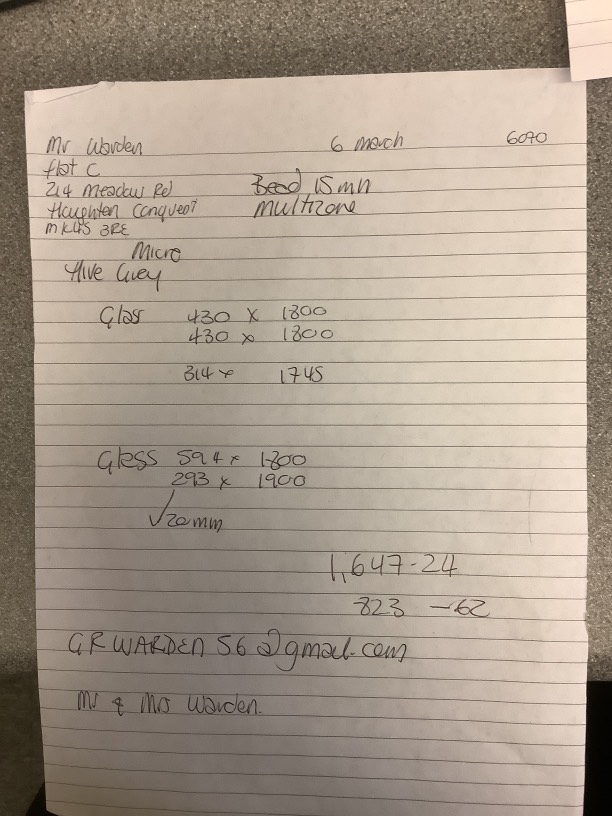 Mr Warden 6 march 6090
flat C
214 Meadow Rd Bead 15mm
Houghton Conquest Multizone
MK45 3RE
Micro
Hive Grey
Glass 430 x 1800
430 x 1800
314 x 1745
Glass 594 x 1800
293 x 1900
√20mm
1,647-24
823 -62
GRWARDEN56@gmail.com
Mr & Mrs Warden.